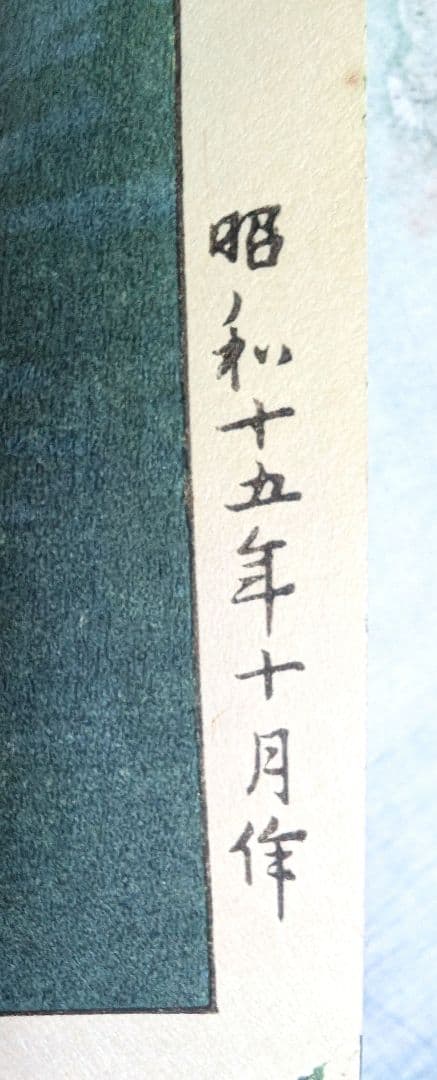 昭和十五年十月作